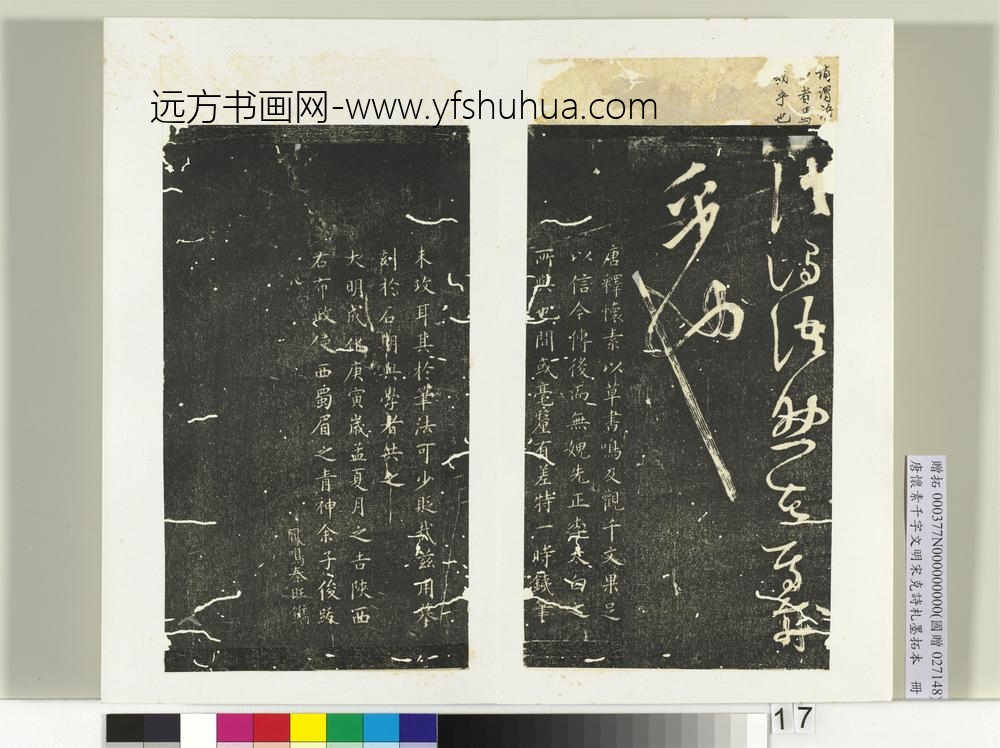 远方书画网-www.yfshuhua.com
謂語
者焉
乎也
謂語助者焉哉
乎也
唐釋懷素以草書鳴及觀千文果足
以信今傳後而無媿先正李太白之
所與也間或毫釐有差特一時鐵筆
未攻耳其於筆法可少貶哉茲用摹
刻於石期與學者共之
大明成化庚寅歲孟夏月之吉陝西
右布政使西蜀眉之青神余子俊跋
鳳鳴秦旺鐫
贈拓 000377N000000000(國贈 027148)
唐懷素千字文明宋克詩札墨拓本 冊
17